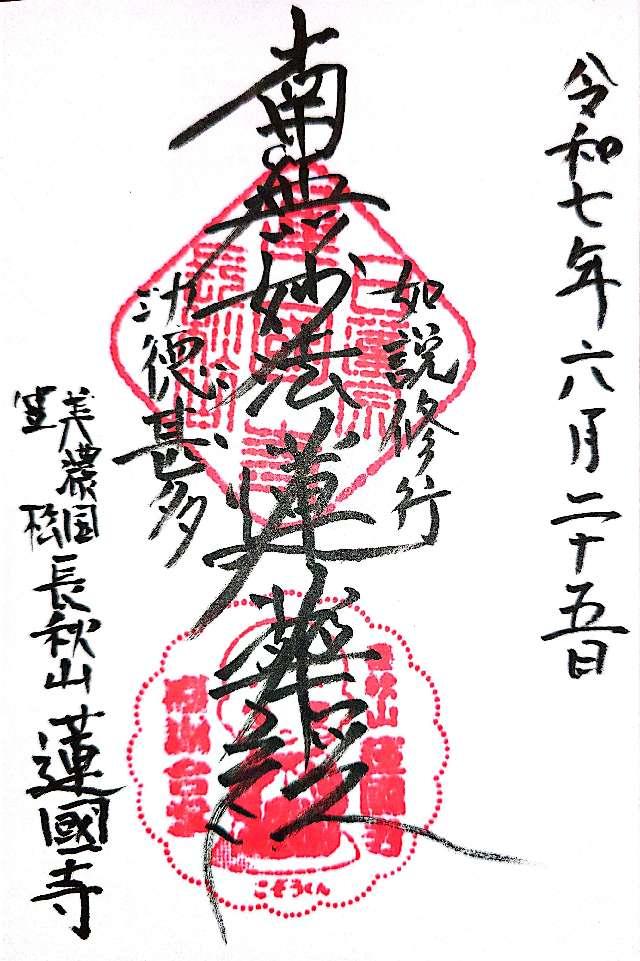 令和七年六月二十五日
如説修行
南無妙法蓮華経
功徳甚多
美濃国
笠松
長秋山
蓮國寺
こぞうくん